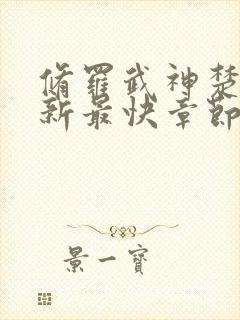 修羅武神楚
新最快章節
景一寶